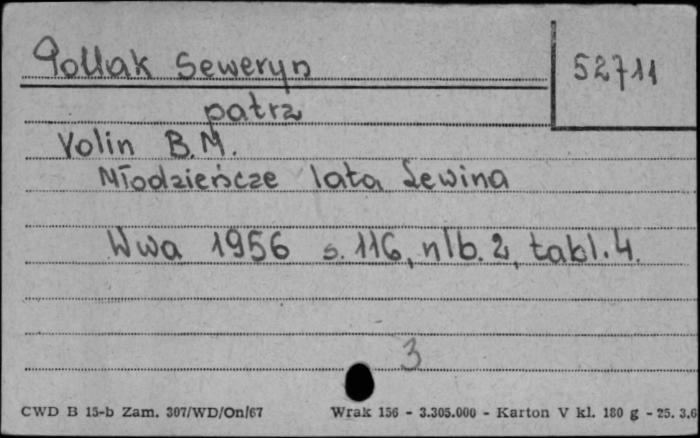 Pollak Seweryn
52711
patrz
Volin B.M.
Młodzieńcze lata Lewina
Wwa 1956 s. 116, nlb. 2, tabl. 4.
3
CWD B 15-b Zam. 307/WD/On/67 Wrak 156 - 3.305.000 - Karton V kl. 180 g - 25. 3.6